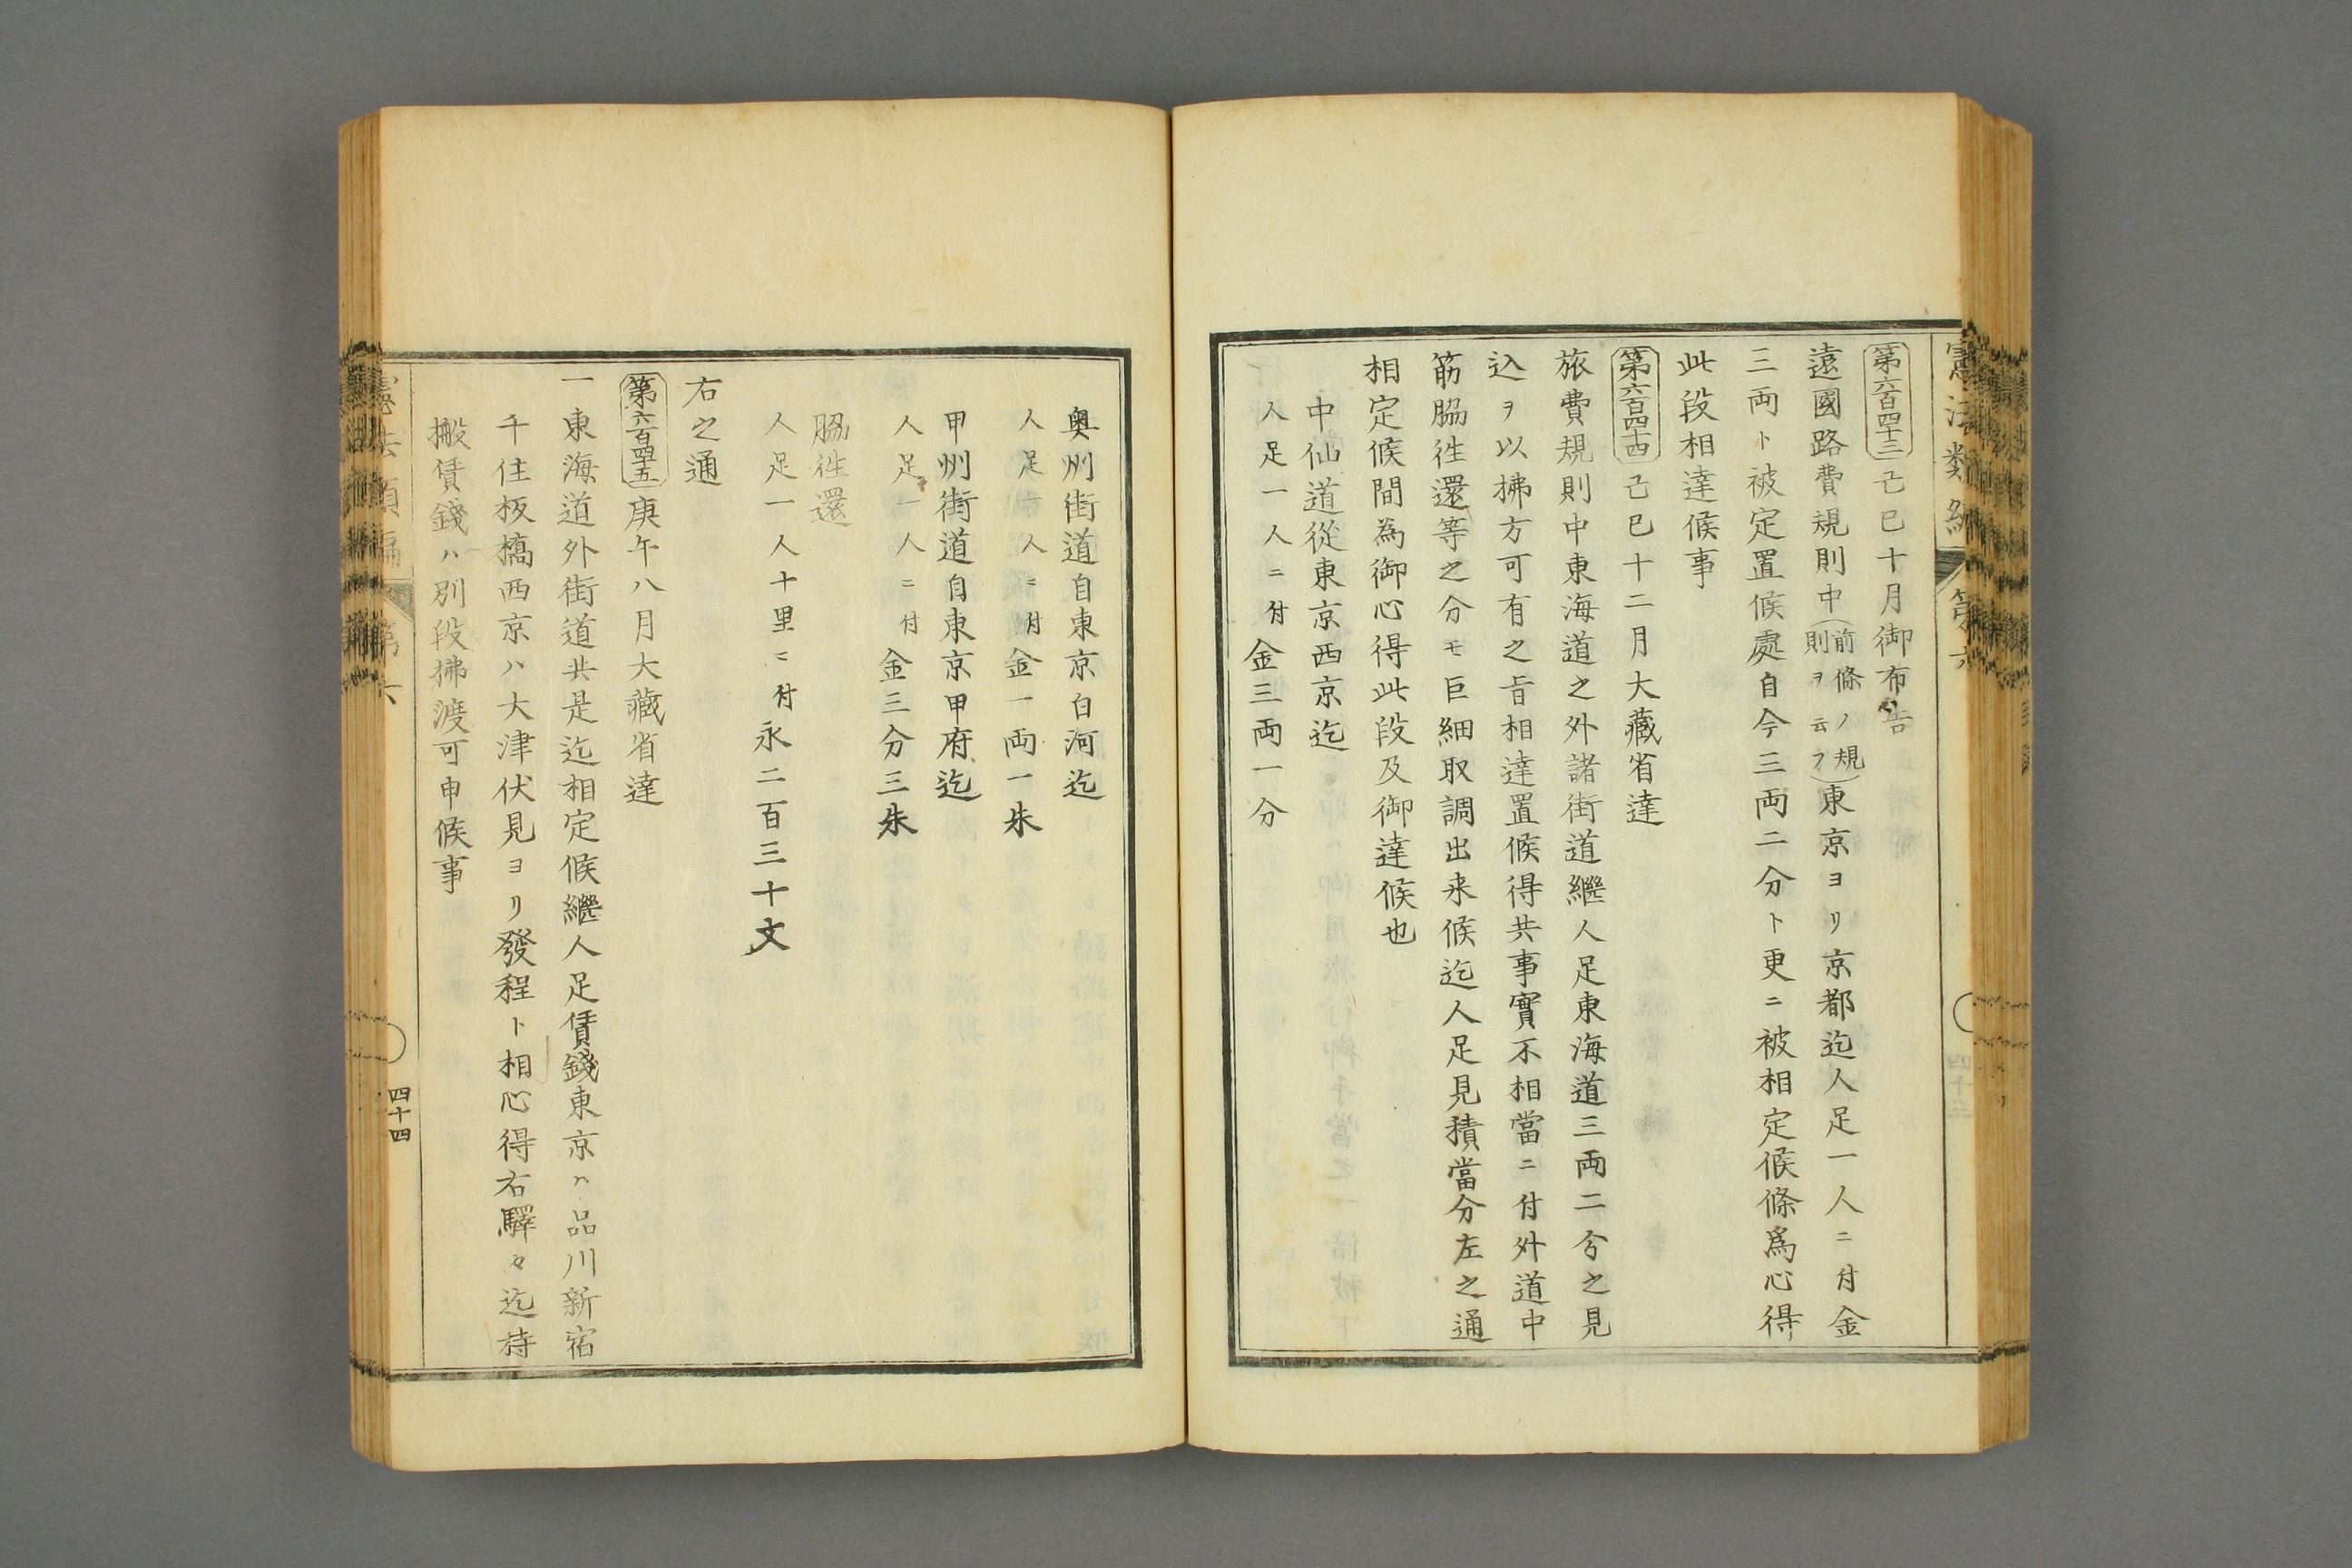 憲法類編
第六
第六百四十三 己巳十月御布告
遠國路費規則中(前條ノ規則ヲ云フ)東京ヨリ京都迄人足一人ニ付金
三両ト被定置候處自今三両二分ト更ニ被相定候條爲心得
此段相達候事
第六百四十四 己巳十二月大藏省達
旅費規則中東海道之外諸街道繼人足東海道三両二分之見
込ヲ以拂方可有之旨相達置候得共事實不相當ニ付外道中
筋脇徃還等之分モ巨細取調出来候迄人足見積當分左之通
相定候間為御心得此段及御達候也
中仙道從東京西京迄
人足一人ニ付金三両一分
奥州街道自東京白河迄
人足一人ニ付金一両一朱
甲州街道自東京甲府迄
人足一人ニ付金三分三朱
脇徃還
人足一人十里ニ付永二百三十文
右之通
第六百四十五 庚午八月大藏省達
一東海道外街道共是迄相定候繼人足賃錢東京ハ品川新宿
千住板橋西京ハ大津伏見ヨリ發程ト相心得右驛々迄持
搬賃錢ハ別段拂渡可申候事
憲法類編
第六
四十四